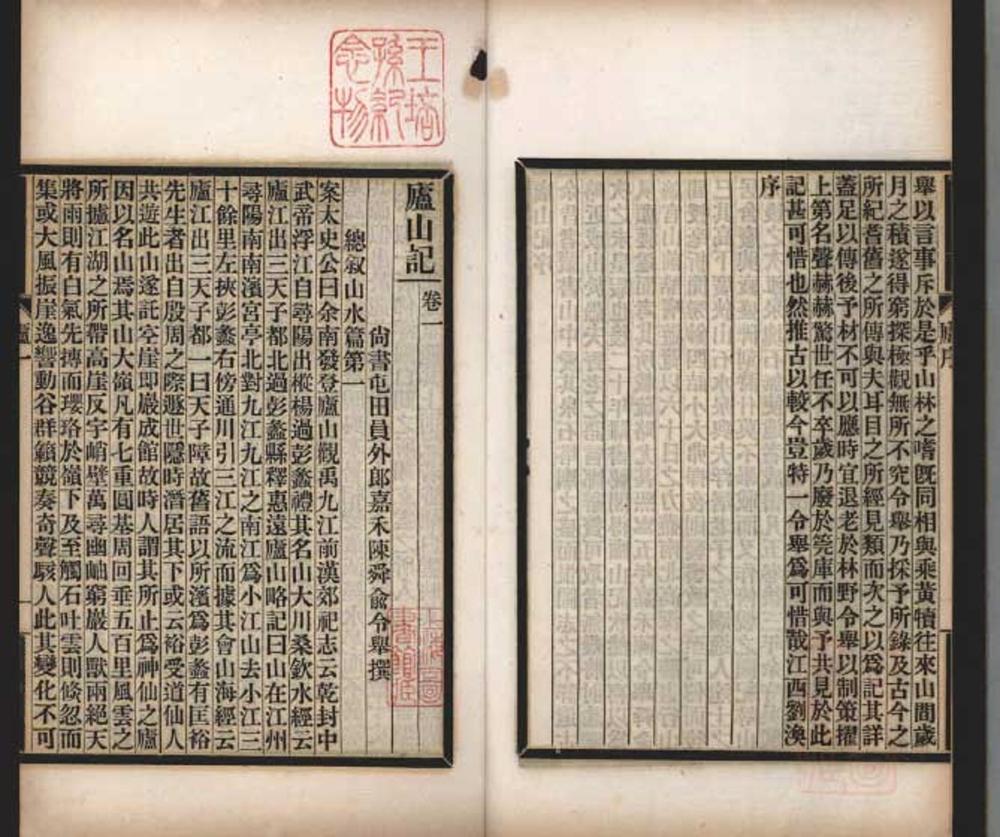 舉以言事斥於是乎山林之嗜旣同相與乘黃犢往來山間歲
月之積遂得窮探極觀無所不究令舉乃採予所錄及古今之
所紀耆舊之所傳與夫耳目之所經見類而次之以爲記其詳
蓋足以傳後予材不可以應時宜退老於林野令舉以制策擢
上第名聲赫赫驚世任不卒歲乃廢於筦庫而與予共見於此
記甚可惜也然推古以較今豈特一令舉爲可惜哉江西劉渙
序
廬序
廬山記 卷一
尚書屯田員外郎嘉禾陳舜兪令舉撰
總敘山水篇第一
案太史公曰余南發登廬山觀禹九江前漢郊祀志云乾封中
武帝浮江自尋陽出樅楊過彭蠡禮其名山大川桑欽水經云
廬江出三天子都北過彭蠡縣釋惠遠廬山略記曰山在江州
尋陽南南濱宮亭北對九江九江之南江爲小江山去小江三
十餘里左挾彭蠡右傍通川引三江之流而據其會山海經云
廬江出三天子都一曰天子障故舊語以所濱爲彭蠡有匡裕
先生者出自殷周之際遯世隱時潛居其下或云裕受道仙人
共遊此山遂託空崖即巖成館故時人謂其所止爲神仙之廬
因以名山焉其山大嶺凡有七重圓基周回垂五百里風雲之
所攄江湖之所帶高崖反宇峭壁萬尋幽岫窮巖人獸兩絕天
將雨則有白氣先摶而瓔珞於嶺下及至觸石吐雲則倏忽而
集或大風振崖逸響動谷群籟競奏奇聲駭人此其變化不可
廬一
玉塔孫氏念刊
上海圖書館藏